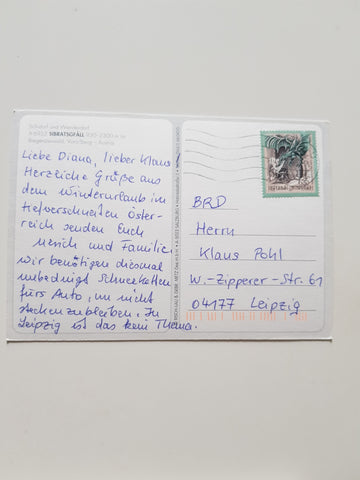 Schidorf und Wanderdorf
A-6952 SIBRATSGFÄLL 930-2300 m
Bregenzerwald, Vorarlberg - Austria
Liebe Diana, lieber Klaus
Herzliche Grüße aus
dem Winterurlaub im
tiefverschneiten Öster-
reich senden Euch
und Familie
wir benötigen diesmal
unbedingt Schneeketten
fürs Auto, um nicht
steckenzubleiben. In
Leipzig ist das kein Thema.
BRD
Herrn
Klaus Pohl
W.-Zipperer-Str. 61
04177 Leipzig